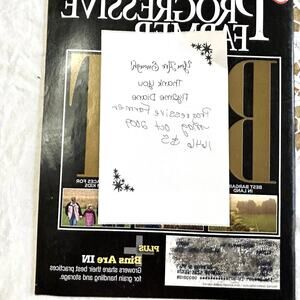 PROGRESSIVE
FARMER
You Are Enough
Thank you
Diane
Progressive Farmer
oct 2009
1646 $5
BEST
IN LAND
PLACES FOR
KIDS
PLUS
Bins Are IN
Growers share their best practices
for grain handling and storage.